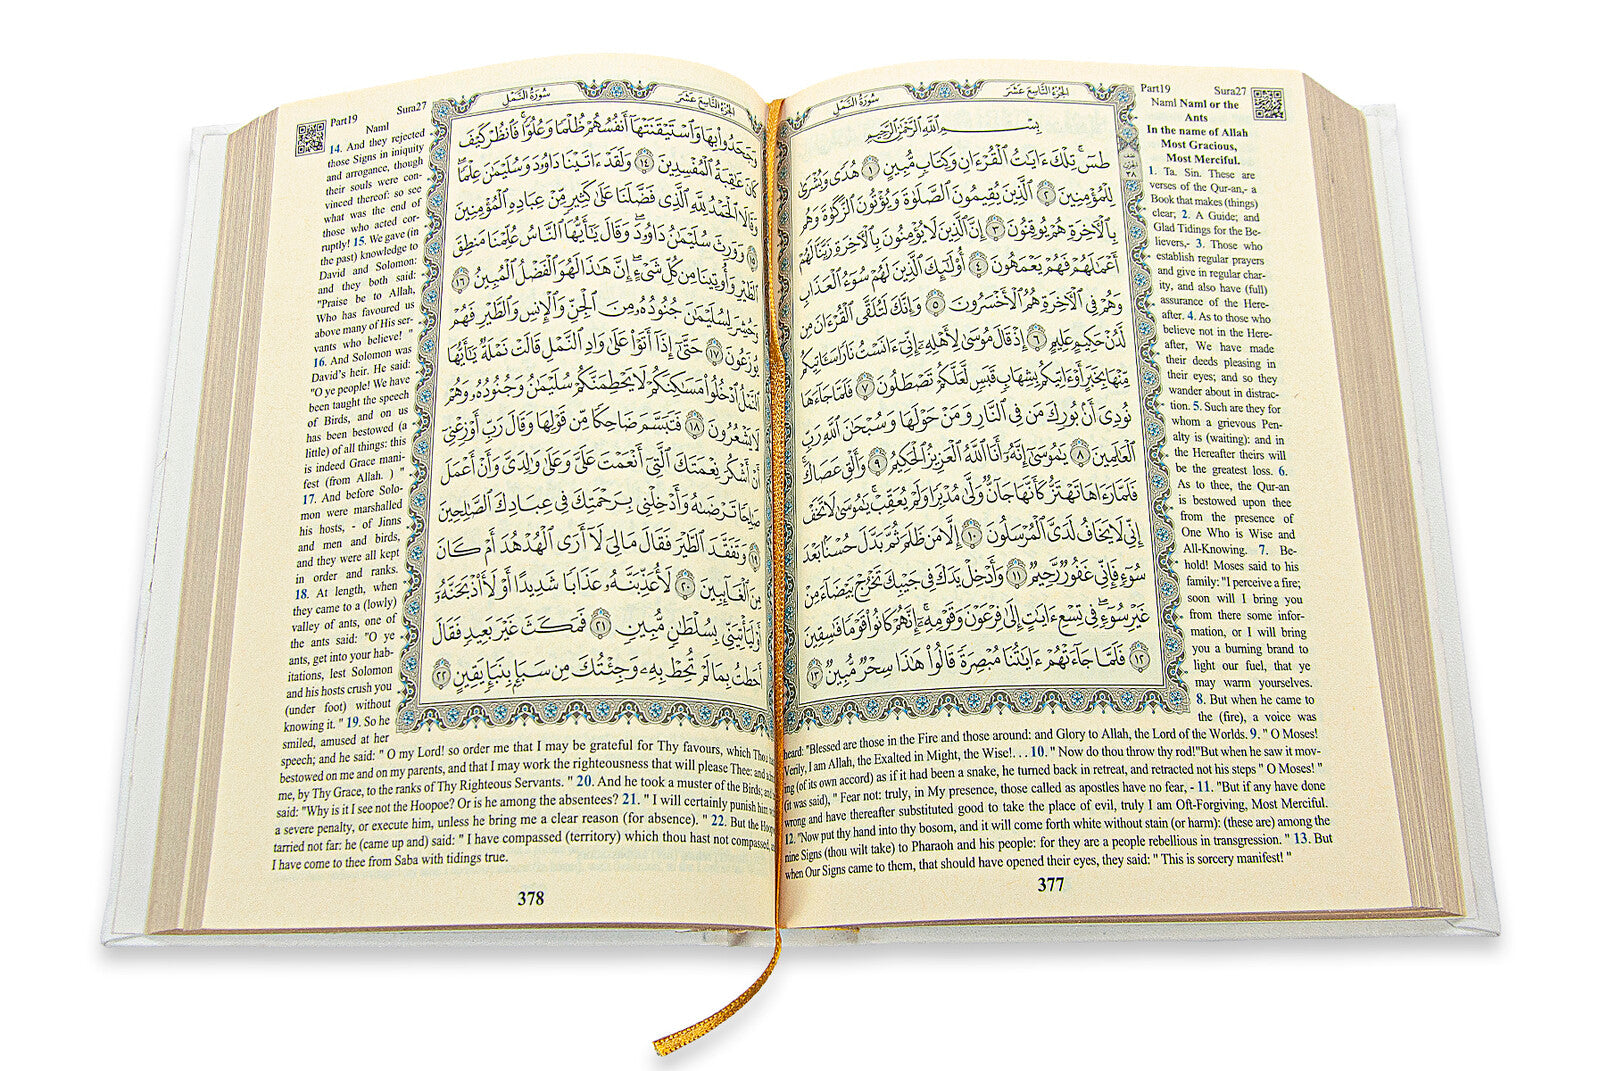 Part19
Sura27
الجزء التاسع عشر
سورة النمل
بِسْمِ اللَّهِ الرَّحْمَٰنِ الرَّحِيمِ
طسٓ ۚ تِلْكَ ءَايَٰتُ ٱلْقُرْءَانِ وَكِتَابٍ مُّبِينٍ ١ هُدًى وَبُشْرَىٰ
لِلْمُؤْمِنِينَ ٢ ٱلَّذِينَ يُقِيمُونَ ٱلصَّلَوٰةَ وَيُؤْتُونَ ٱلزَّكَوٰةَ وَهُم
بِٱلْءَاخِرَةِ هُمْ يُوقِنُونَ ٣ إِنَّ ٱلَّذِينَ لَا يُؤْمِنُونَ بِٱلْءَاخِرَةِ زَيَّنَّا لَهُمْ
أَعْمَٰلَهُمْ فَهُمْ يَعْمَهُونَ ٤ أُو۟لَٰٓئِكَ ٱلَّذِينَ لَهُمْ سُوٓءُ ٱلْعَذَابِ
وَهُمْ فِى ٱلْءَاخِرَةِ هُمُ ٱلْأَخْسَرُونَ ٥ وَإِنَّكَ لَتُلَقَّى ٱلْقُرْءَانَ مِن
لَّدُنْ حَكِيمٍ عَلِيمٍ ٦ إِذْ قَالَ مُوسَىٰ لِأَهْلِهِۦٓ إِنِّىٓ ءَانَسْتُ نَارًا سَـَٔاتِيكُم
مِّنْهَا بِخَبَرٍ أَوْ ءَاتِيكُم بِشِهَابٍ قَبَسٍ لَّعَلَّكُمْ تَصْطَلُونَ ٧ فَلَمَّا جَآءَهَا
نُودِىَ أَنۢ بُورِكَ مَن فِى ٱلنَّارِ وَمَنْ حَوْلَهَا وَسُبْحَٰنَ ٱللَّهِ رَبِّ
ٱلْعَٰلَمِينَ ٨ يَٰمُوسَىٰٓ إِنَّهُۥٓ أَنَا ٱللَّهُ ٱلْعَزِيزُ ٱلْحَكِيمُ ٩ وَأَلْقِ عَصَاكَ ۚ
فَلَمَّا رَءَاهَا تَهْتَزُّ كَأَنَّهَا جَآنٌّ وَلَّىٰ مُدْبِرًا وَلَمْ يُعَقِّبْ ۚ يَٰمُوسَىٰ لَا تَخَفْ
إِنِّى لَا يَخَافُ لَدَىَّ ٱلْمُرْسَلُونَ ١٠ إِلَّا مَن ظَلَمَ ثُمَّ بَدَّلَ حُسْنًۢا بَعْدَ
سُوٓءٍ فَإِنِّى غَفُورٌ رَّحِيمٌ ١١ وَأَدْخِلْ يَدَكَ فِى جَيْبِكَ تَخْرُجْ بَيْضَآءَ مِنْ
غَيْرِ سُوٓءٍ ۖ فِى تِسْعِ ءَايَٰتٍ إِلَىٰ فِرْعَوْنَ وَقَوْمِهِۦٓ ۚ إِنَّهُمْ كَانُوا۟ قَوْمًا فَٰسِقِينَ
١٢ فَلَمَّا جَآءَتْهُمْ ءَايَٰتُنَا مُبْصِرَةً قَالُوا۟ هَٰذَا سِحْرٌ مُّبِينٌ ١٣
Naml Naml or the
Ants
In the name of Allah
Most Gracious,
Most Merciful.
1. Ta. Sin. These are
verses of the Qur-an,- a
Book that makes (things)
clear; 2. A Guide; and
Glad Tidings for the Be-
lievers,- 3. Those who
establish regular prayers
and give in regular char-
ity, and also have (full)
assurance of the Here-
after. 4. As to those who
believe not in the Here-
after, We have made
their deeds pleasing in
their eyes; and so they
wander about in distrac-
tion. 5. Such are they for
whom a grievous Pen-
alty is (waiting): and in
the Hereafter theirs will
be the greatest loss. 6.
As to thee, the Qur-an
is bestowed upon thee
from the presence of
One Who is Wise and
All-Knowing. 7. Be-
hold! Moses said to his
family: "I perceive a fire;
soon will I bring you
from there some infor-
mation, or I will bring
you a burning brand to
light our fuel, that ye
may warm yourselves.
8. But when he came to
the (fire), a voice was
heard: "Blessed are those in the Fire and those around: and Glory to Allah, the Lord of the Worlds. 9. " O Moses!
Verily, I am Allah, the Exalted in Might, the Wise!. . . 10. " Now do thou throw thy rod!"But when he saw it mov-
ing (of its own accord) as if it had been a snake, he turned back in retreat, and retracted not his steps " O Moses! "
(it was said), " Fear not: truly, in My presence, those called as apostles have no fear, - 11. "But if any have done
wrong and have thereafter substituted good to take the place of evil, truly I am Oft-Forgiving, Most Merciful.
12. "Now put thy hand into thy bosom, and it will come forth white without stain (or harm): (these are) among the
nine Signs (thou wilt take) to Pharaoh and his people: for they are a people rebellious in transgression. " 13. But
when Our Signs came to them, that should have opened their eyes, they said: " This is sorcery manifest! "
377
Part19
Sura27
الجزء التاسع عشر
سورة النمل
وَجَحَدُوا۟ بِهَا وَٱسْتَيْقَنَتْهَآ أَنفُسُهُمْ ظُلْمًا وَعُلُوًّا ۚ فَٱنظُرْ كَيْفَ
كَانَ عَٰقِبَةُ ٱلْمُفْسِدِينَ ١٤ وَلَقَدْ ءَاتَيْنَا دَاوُۥدَ وَسُلَيْمَٰنَ عِلْمًا ۖ
وَقَالَا ٱلْحَمْدُ لِلَّهِ ٱلَّذِى فَضَّلَنَا عَلَىٰ كَثِيرٍ مِّنْ عِبَادِهِ ٱلْمُؤْمِنِينَ
١٥ وَوَرِثَ سُلَيْمَٰنُ دَاوُۥدَ ۖ وَقَالَ يَٰٓأَيُّهَا ٱلنَّاسُ عُلِّمْنَا مَنطِقَ
ٱلطَّيْرِ وَأُوتِينَا مِن كُلِّ شَىْءٍ ۖ إِنَّ هَٰذَا لَهُوَ ٱلْفَضْلُ ٱلْمُبِينُ ١٦
وَحُشِرَ لِسُلَيْمَٰنَ جُنُودُهُۥ مِنَ ٱلْجِنِّ وَٱلْإِنسِ وَٱلطَّيْرِ فَهُمْ
يُوزَعُونَ ١٧ حَتَّىٰٓ إِذَآ أَتَوْا۟ عَلَىٰ وَادِ ٱلنَّمْلِ قَالَتْ نَمْلَةٌ يَٰٓأَيُّهَا
ٱلنَّمْلُ ٱدْخُلُوا۟ مَسَٰكِنَكُمْ لَا يَحْطِمَنَّكُمْ سُلَيْمَٰنُ وَجُنُودُهُۥ وَهُمْ
لَا يَشْعُرُونَ ١٨ فَتَبَسَّمَ ضَاحِكًا مِّن قَوْلِهَا وَقَالَ رَبِّ أَوْزِعْنِىٓ
أَنْ أَشْكُرَ نِعْمَتَكَ ٱلَّتِىٓ أَنْعَمْتَ عَلَىَّ وَعَلَىٰ وَٰلِدَىَّ وَأَنْ أَعْمَلَ
صَٰلِحًا تَرْضَىٰهُ وَأَدْخِلْنِى بِرَحْمَتِكَ فِى عِبَادِكَ ٱلصَّٰلِحِينَ
١٩ وَتَفَقَّدَ ٱلطَّيْرَ فَقَالَ مَا لِىَ لَآ أَرَى ٱلْهُدْهُدَ أَمْ كَانَ
مِنَ ٱلْغَآئِبِينَ ٢٠ لَأُعَذِّبَنَّهُۥ عَذَابًا شَدِيدًا أَوْ لَأَا۟ذْبَحَنَّهُۥٓ
أَوْ لَيَأْتِيَنِّى بِسُلْطَٰنٍ مُّبِينٍ ٢١ فَمَكَثَ غَيْرَ بَعِيدٍ فَقَالَ
أَحَطتُ بِمَا لَمْ تُحِطْ بِهِۦ وَجِئْتُكَ مِن سَبَإٍۭ بِنَبَإٍ يَقِينٍ ٢٢
Naml
14. And they rejected
those Signs in iniquity
and arrogance, though
their souls were con-
vinced thereof: so see
what was the end of
those who acted cor-
ruptly! 15. We gave (in
the past) knowledge to
David and Solomon:
and they both said:
"Praise be to Allah,
Who has favoured us
above many of His ser-
vants who believe! "
16. And Solomon was
David's heir. He said:
"O ye people! We have
been taught the speech
of Birds, and on us
has been bestowed (a
little) of all things: this
is indeed Grace mani-
fest (from Allah. ) "
17. And before Solo-
mon were marshalled
his hosts, - of Jinns
and men and birds,
and they were all kept
in order and ranks.
18. At length, when
they came to a (lowly)
valley of ants, one of
the ants said: "O ye
ants, get into your hab-
itations, lest Solomon
and his hosts crush you
(under foot) without
knowing it. " 19. So he
smiled, amused at her
speech; and he said: " O my Lord! so order me that I may be grateful for Thy favours, which Thou
bestowed on me and on my parents, and that I may work the righteousness that will please Thee: and
me, by Thy Grace, to the ranks of Thy Righteous Servants. " 20. And he took a muster of the Birds; and
said: "Why is it I see not the Hoopoe? Or is he among the absentees? 21. " I will certainly punish him
a severe penalty, or execute him, unless he bring me a clear reason (for absence). " 22. But the Hoopoe
tarried not far: he (came up and) said: " I have compassed (territory) which thou hast not compassed,
I have come to thee from Saba with tidings true.
378